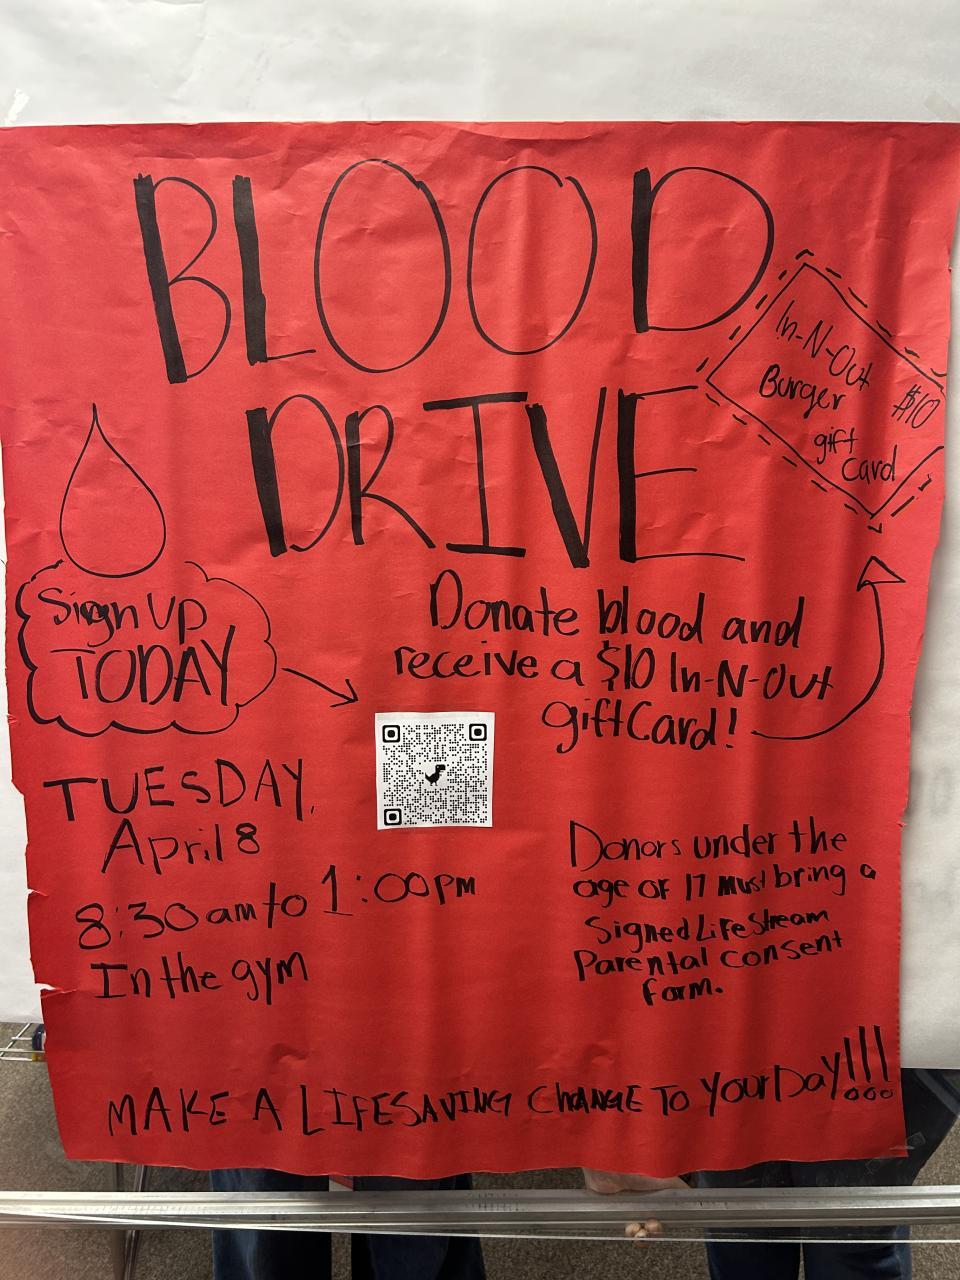 BLOOD
DRIVE
In-N-Out
Burger
$10
gift
Card
Sign Up
TODAY
Donate blood and
receive a $10 In-N-Out
gift Card!
TUESDAY,
April 8
8:30 am to 1:00pm
In the gym
Donors under the
age of 17 must bring a
Signed LifeStream
Parental consent
form.
MAKE A LIFESAVING CHANGE TO YOUR DAY!!!